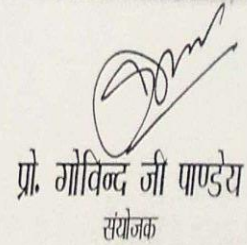 प्रो. गोविन्द जी पाण्डेय
संयोजक